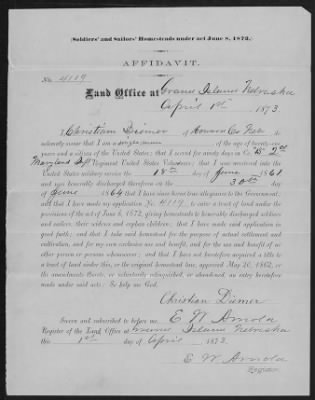 (Soldiers' and Sailors' Homesteads under act June 8, 1872.)
AFFIDAVIT.
No. 4119
Land Office at Grand Island Nebraska
April 1st 1873.
I, Christian Diemer of Howard Co Neb do
solemnly swear that I am a single man of the age of twenty-one
years and a citizen of the United States; that I served for ninety days in Co. "B" 2nd
Maryland Regiment United States Volunteers; that I was mustered into the
United States military service the 18th day of June 1861
and was honorably discharged therefrom on the 30th day
of June 1864 that I have since borne true allegiance to the Government;
and that I have made my application No. 4119 to enter a tract of land under the
provisions of the act of June 8, 1872, giving homesteads to honorably discharged soldiers
and sailors, their widows and orphan children; that I have made said application in
good faith; and that I take said homestead for the purpose of actual settlement and
cultivation, and for my own exclusive use and benefit, and for the use and benefit of no
other person or persons whomsoever; and that I have not heretofore acquired a title to
a tract of land under this, or the original homestead law, approved May 20, 1862, or
the amendments thereto, or voluntarily relinquished, or abandoned, an entry heretofore
made under said acts: So help me God.
Christian Diemer
Sworn and subscribed to before me E W Arnold
Register of the Land Office at Grand Island Nebraska
this 1st day of April 1873.
E W Arnold
Register